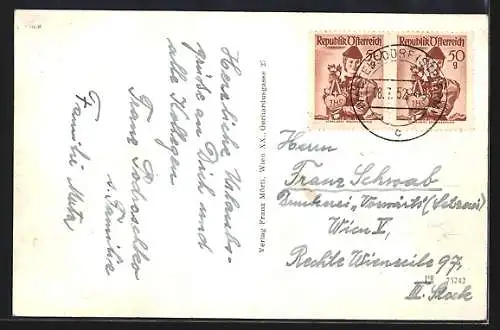 Herzliche Urlaubs-
grüße an Dich und
alle Kollegen
Franz
s. Familie
Familie
Verlag Franz Mörtl, Wien XX., Gerhardusgasse 25
Republik Österreich
50
g
Republik Österreich
50
g
52
c
Herrn
Franz Schwab
Druckerei „Vorwärts" (Setzerei)
Wien V,
Rechte Wienzeile 97,
III. Stock